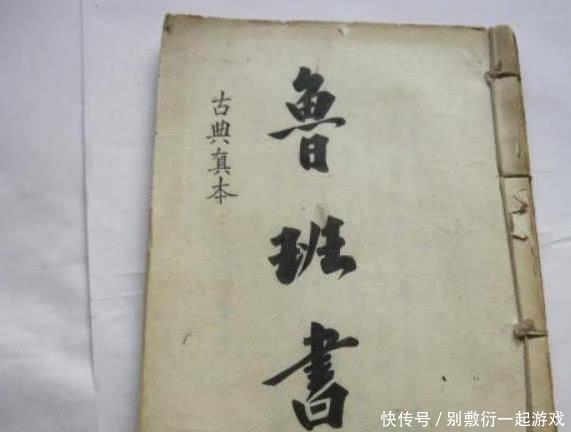 魯班書
古典真本
快传号/别敷衍一起游戏